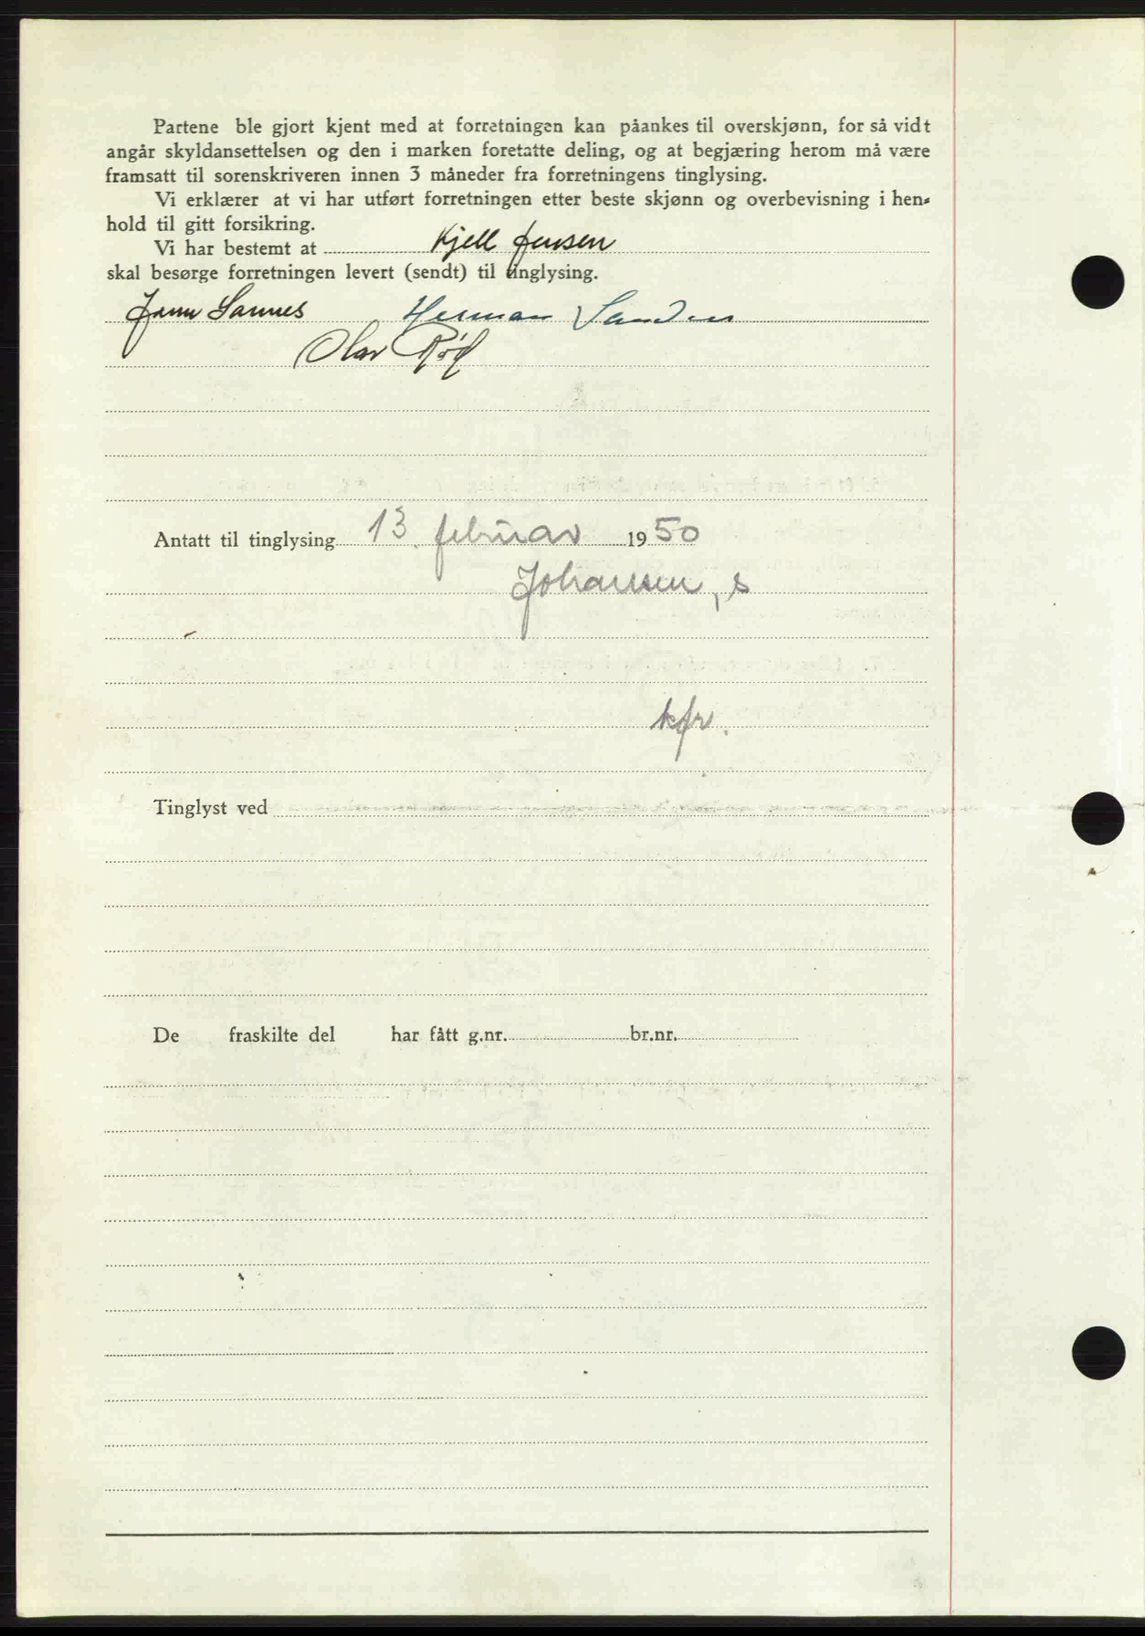 Partene ble gjort kjent med at forretningen kan påankes til overskjønn, for så vidt
angår skyldansettelsen og den i marken foretatte deling, og at begjæring herom må være
framsatt til sorenskriveren innen 3 måneder fra forretningens tinglysing.
Vi erklærer at vi har utført forretningen etter beste skjønn og overbevisning i hen-
hold til gitt forsikring.
Vi har bestemt at Kjell Jensen
skal besørge forretningen levert (sendt) til tinglysing.
Sannes Herman
Olav Rød
Antatt til tinglysing 13. februar 1950
Johansen, s
kfr.
Tinglyst ved
De fraskilte del har fått g.nr. br.nr.